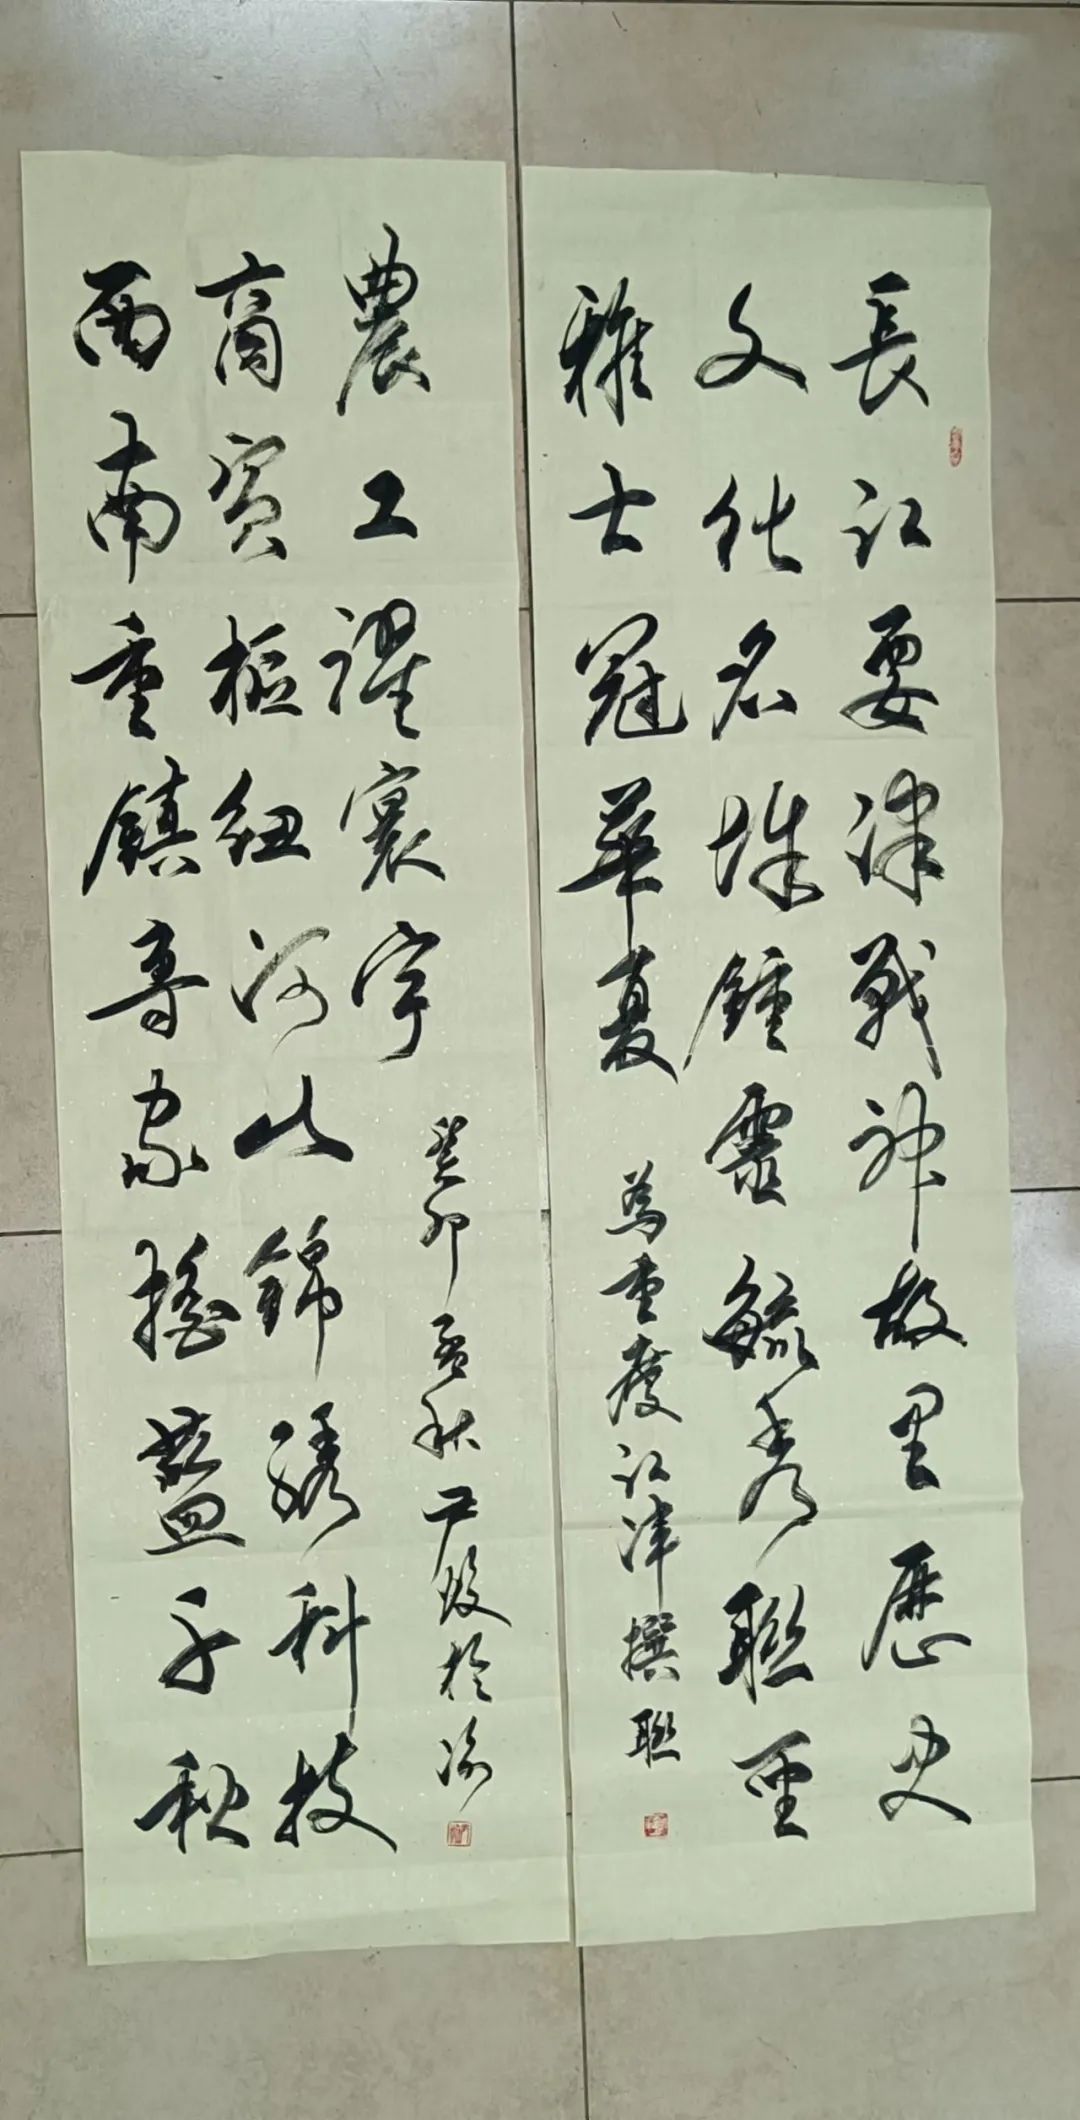 長江要津戰神故里歷史
文化名城鍾靈毓秀聯聖
雅士冠華夏
為重慶江津撰聯
西南重鎮專家搖籃千秋
商貿樞紐河山錦綉科技
農工耀寰宇
癸卯孟秋尹於渝